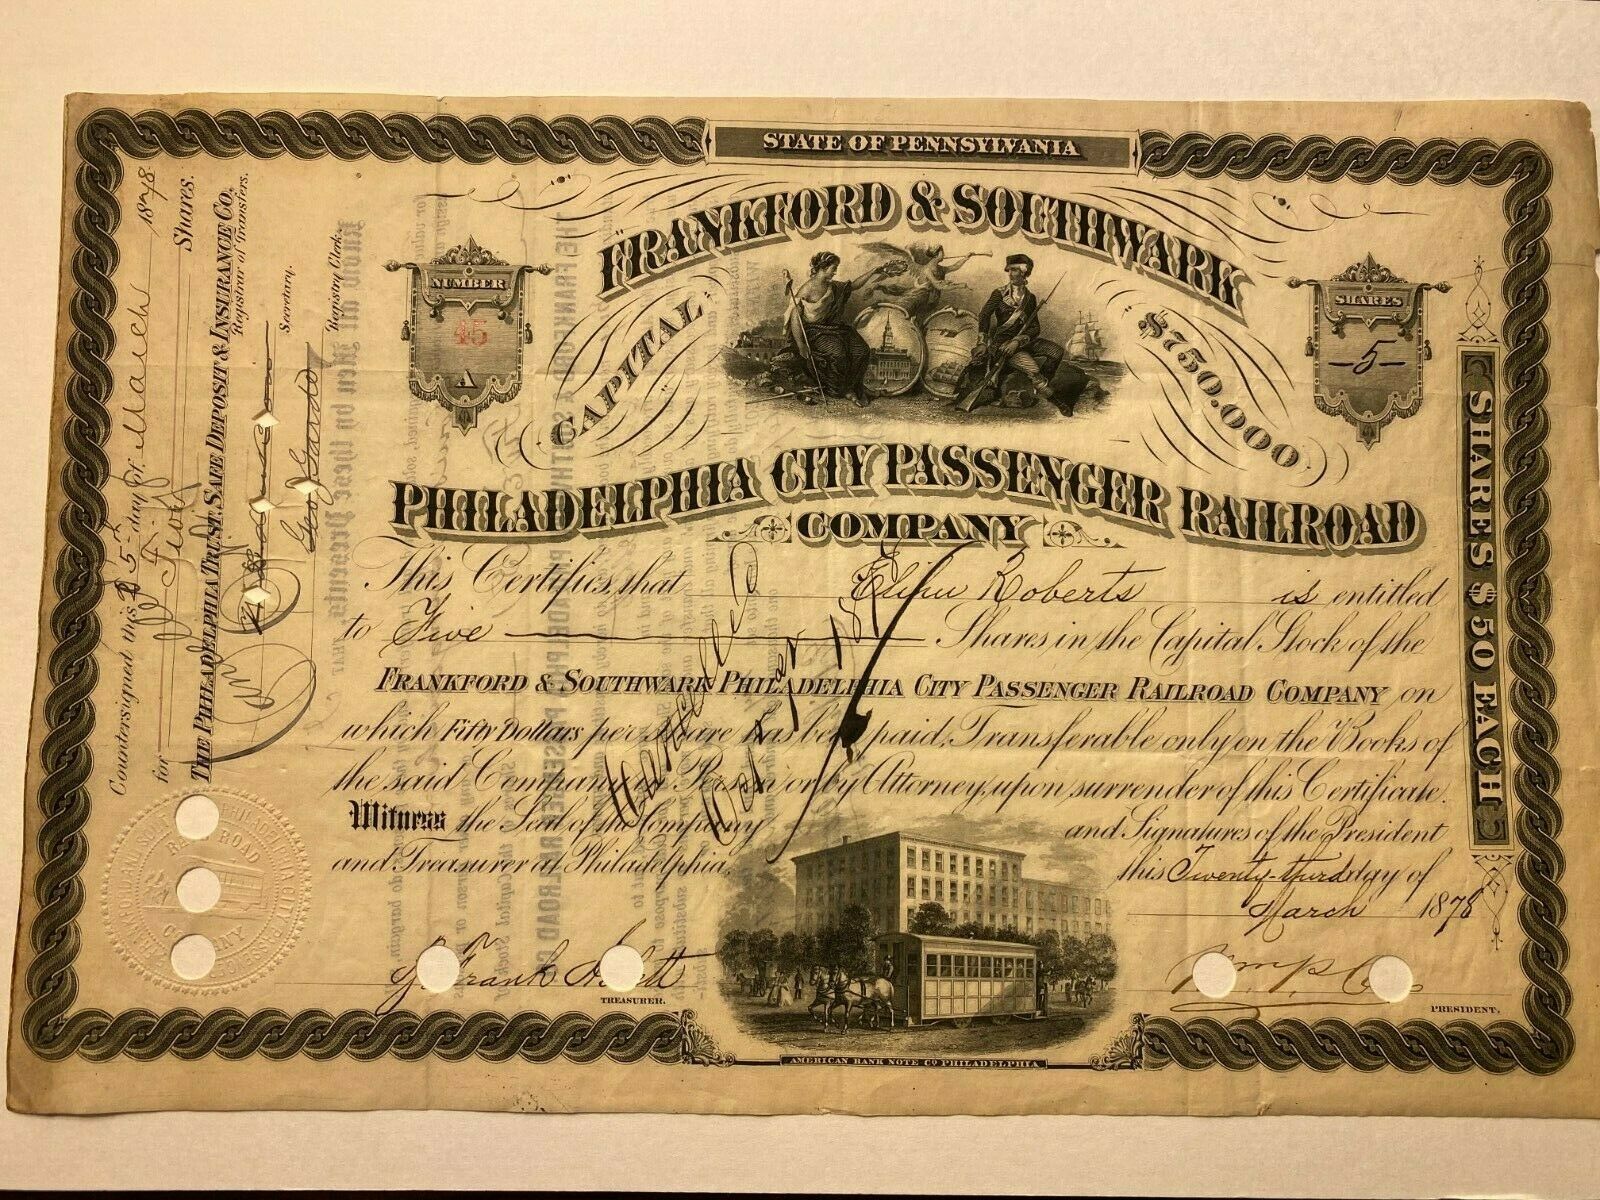 STATE OF PENNSYLVANIA
FRANKFORD & SOUTHWARK
NUMBER
45
A
SHARES
-5-
CAPITAL $750.000
PHILADELPHIA CITY PASSENGER RAILROAD
COMPANY
This Certifies, that Elihu Roberts is entitled
to Five Shares in the Capital Stock of the
FRANKFORD & SOUTHWARK PHILADELPHIA CITY PASSENGER RAILROAD COMPANY on
which Fifty Dollars per share has been paid, Transferable only on the Books of
the said Company in Person or by Attorney, upon surrender of this Certificate.
Witness the Seal of the Company and Signatures of the President
and Treasurer at Philadelphia, this Twenty-third day of
March 1878
Cancelled
TREASURER.
PRESIDENT.
AMERICAN BANK NOTE CO PHILADELPHIA
SHARES $50 EACH
Countersigned this 25th day of March 1878
for Shares.
THE PHILADELPHIA TRUST, SAFE DEPOSIT & INSURANCE CO.,
Registrar of Transfers.
Secretary.
Registry Clerk.